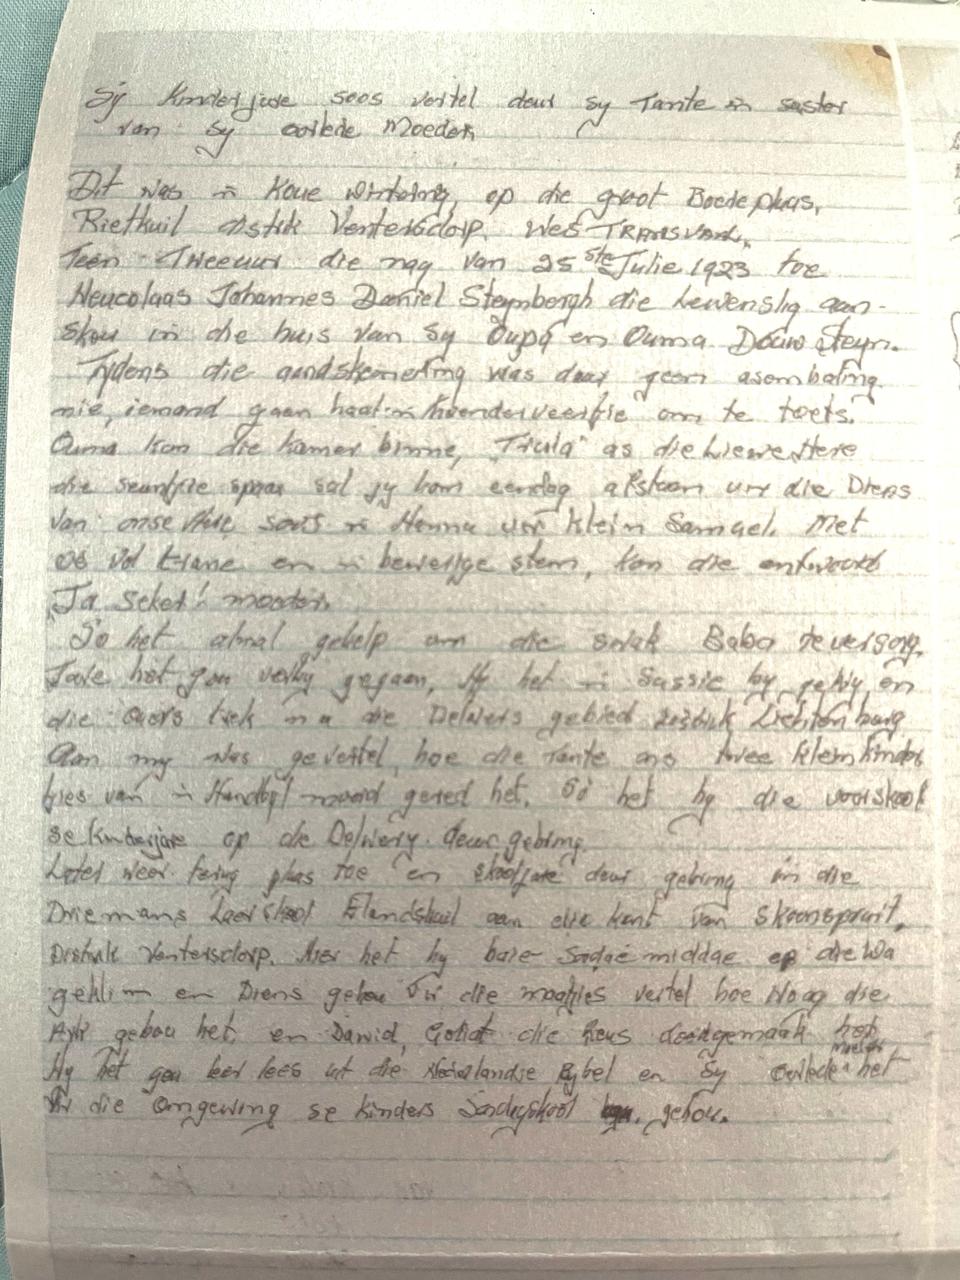 Sy Kinderjare soos vertel deur sy Tante 'n suster
van sy oorlede Moeder,
Dit was 'n Koue winterdag, op die groot Boere plaas,
Rietkuil distrik Ventersdorp. Wes TRANSVAAL,
Teen Tweeuur die nag van 25ste Julie 1923 toe
Neucolaas Johannes Daniel Steynbergh die Lewenslig aan-
skou in die huis van sy Oupa en Ouma Douw Steyn.
Tydens die aandskemering was daar geen asemhaling
nie, iemand gaan haal 'n hoenderveertjie om te toets.
Ouma kom die kamer binne, "Trula" as die Liewe Here
die seuntjie spaar sal jy hom eendag afstaan vir die Diens
van onse Here, soos 'n Hanna vir klein Samuel. Met
oë vol trane en 'n bewerige stem, kom die antwoord
Ja seker! moeder.
So het almal gehelp om die swak Baba te versorg.
Jare het gou verby gegaan, Hy het 'n Sussie by gekry, en
die Ouers trek na die Delwers gebied distrik Lichtenburg
Aan my was gevertel, hoe die Tante ons twee klein kinder
tjies van 'n moord gered het. So het hy die voorskool
se kinderjare op die Delwery deur gebring.
Later weer terug plaas toe en skooljare deur gebring in die
Driemans Laerskool Elandskuil aan die kant van Skoonspruit,
Distrik Ventersdorp. Hier het hy baie middae op die Wa
geklim en Diens gehou vir die maatjies vertel hoe Noag die
Ark gebou het, en Dawid, Goliat die Reus doodgemaak het
Hy het gou leer lees uit die Nederlandse Bybel en sy oorlede moeder het
vir die Omgewing se kinders Sondagskool gehou.